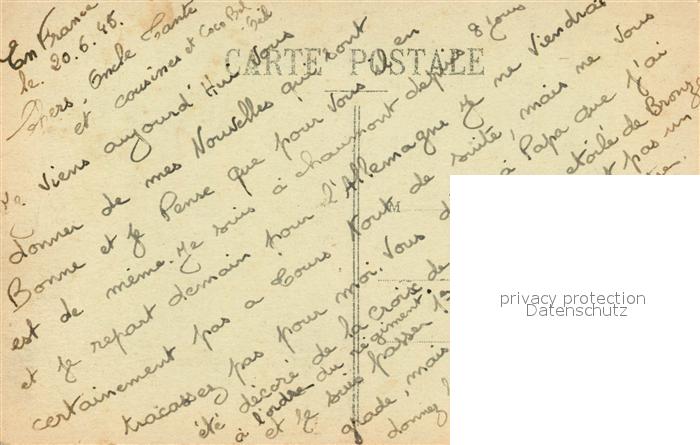 En France
le. 20.6.45.
Chers Oncle Tante
et cousines et Coco Bel
CARTE POSTALE
Je Viens aujourd'Hui Vous
donner de mes Nouvelles qui sont
Bonne et Je Pense que pour Vous il en
est de même. Je suis à chaumont depuis 8 Jours
et Je repart demain pour l'Allemagne Je ne Viendrai
certainement pas a Tours tout de suite, mais ne Vous
tracassez pas pour moi. Vous à Papa que J'ai
été décoré de la Croix de étoile de Bronze
à l'ordre du régiment. pas un
et Je suis passer
grade, mais
donnez
privacy protection
Datenschutz